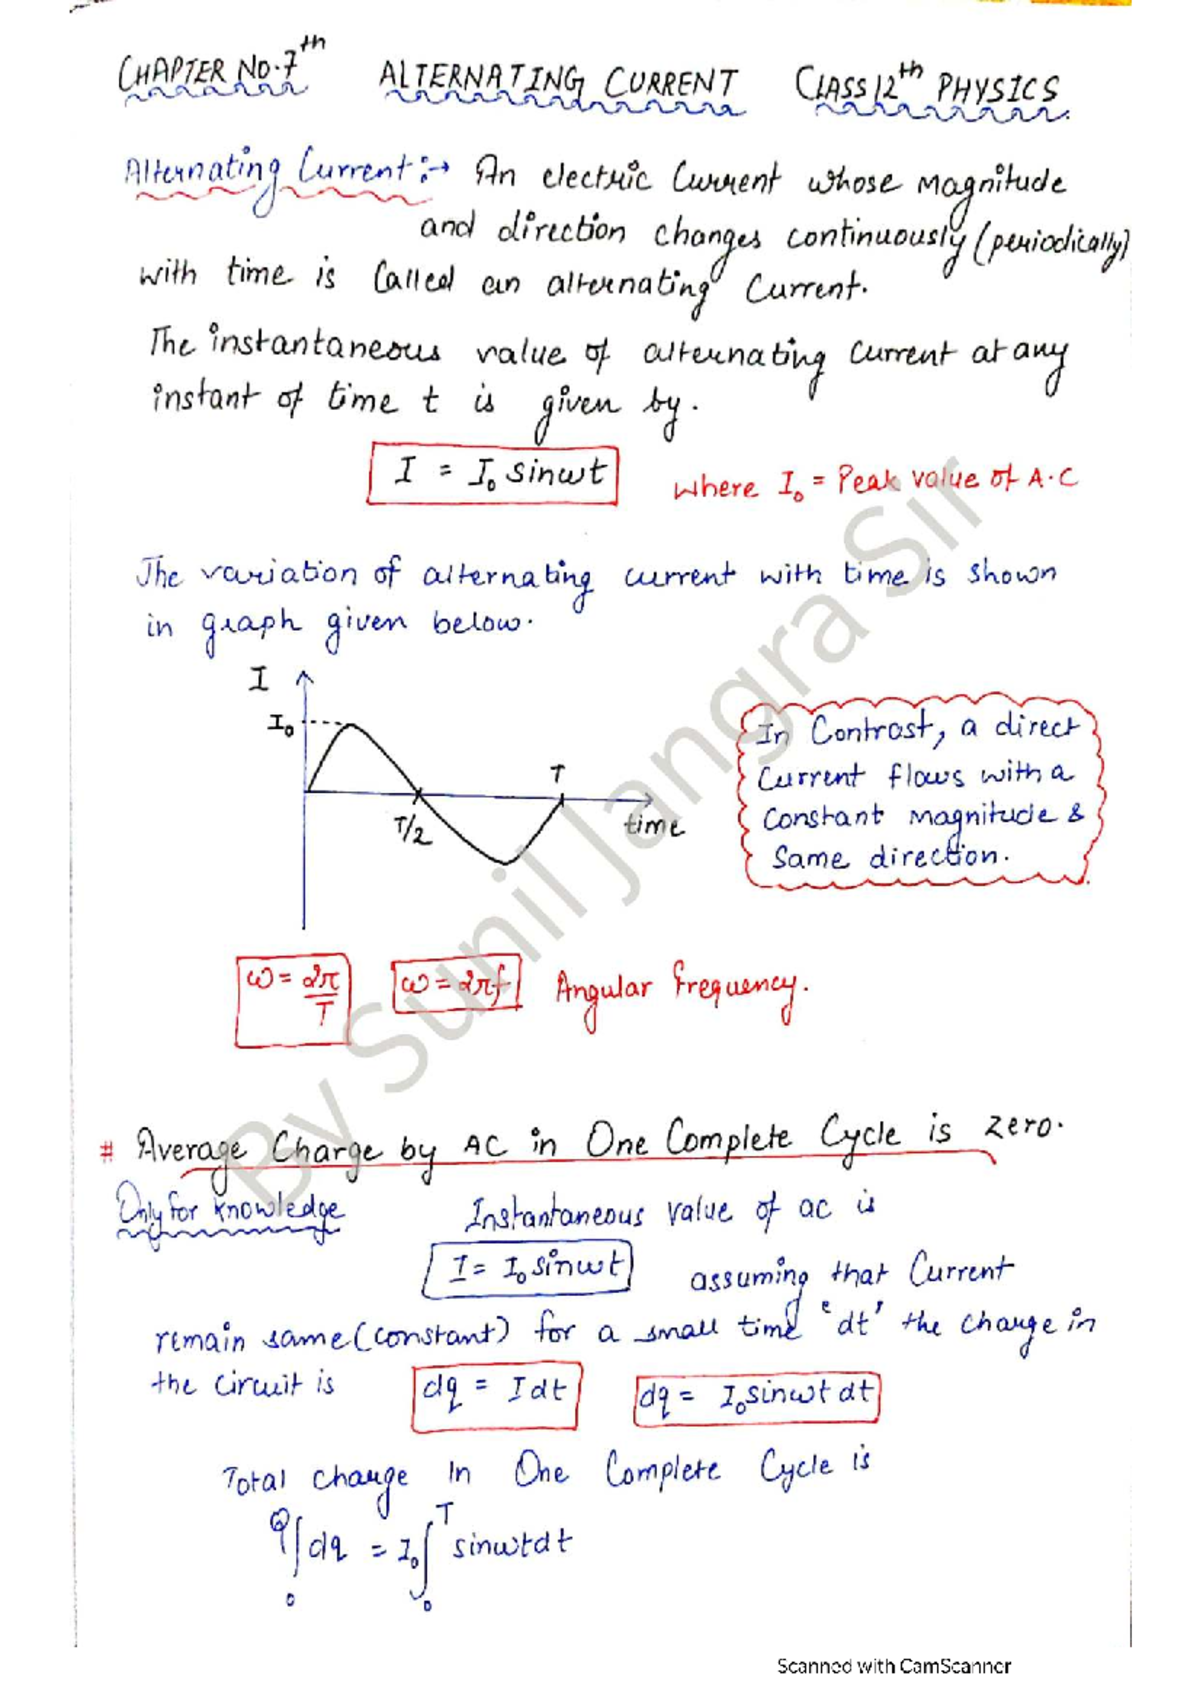 CHAPTER NO.7th ALTERNATING CURRENT CLASS 12th PHYSICS
Alternating Current:→ An electric Current whose Magnitude
and direction changes continuously (periodically)
with time is Called an alternating Current.
The instantaneous value of alternating Current at any
instant of time t is given by.
I = I₀ sinωt where I₀ = Peak value of A.C
The variation of alternating current with time is shown
in graph given below.
I
I₀
T
T/2
time
In Contrast, a direct
Current flows with a
Constant Magnitude &
Same direction.
ω = 2π/T ω = 2πf Angular frequency.
# Average Charge by AC in One Complete Cycle is zero.
Only for knowledge Instantaneous value of ac is
I = I₀ sinωt assuming that Current
remain same (constant) for a small time 'dt' the charge in
the circuit is dq = Idt dq = I₀sinωt dt
Total charge in One Complete Cycle is
Q∫₀ dq = I₀ ∫₀ᵀ sinωtdt
By Sunil Jangra Sir
Scanned with CamScanner